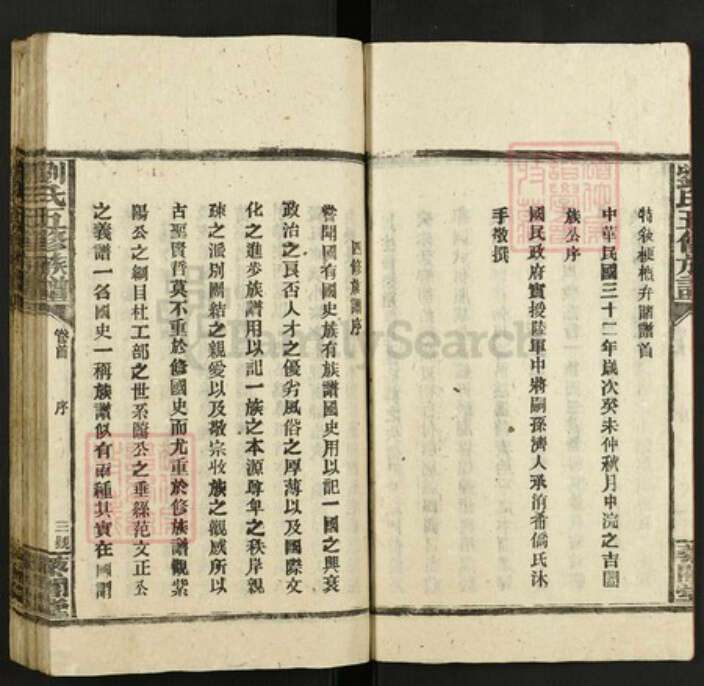 特敘梗槪弁諸譜首
中華民國三十二年歲次癸未仲秋月中浣之吉闔
族公序
國民政府實授陸軍中將嗣孫濟人承湔番僑氏沐
手敬撰
四修族譜序
嘗聞國有國史族有族譜國史用以記一國之興衰
政治之良否人才之優劣風俗之厚薄以及國際文
化之進步族譜用以記一族之本源尊卑之秩序親
疎之派別團結之親愛以及敬宗收族之觀感所以
古聖賢哲莫不重於修國史而尤重於修族譜觀紫
陽公之綱目杜工部之世系歐公之垂絲范文正公
之義譜一名國史一稱族譜似有兩種其實在國謂
劉氏五修族譜
卷首
序
三
劉氏五修族譜
FamilySearch